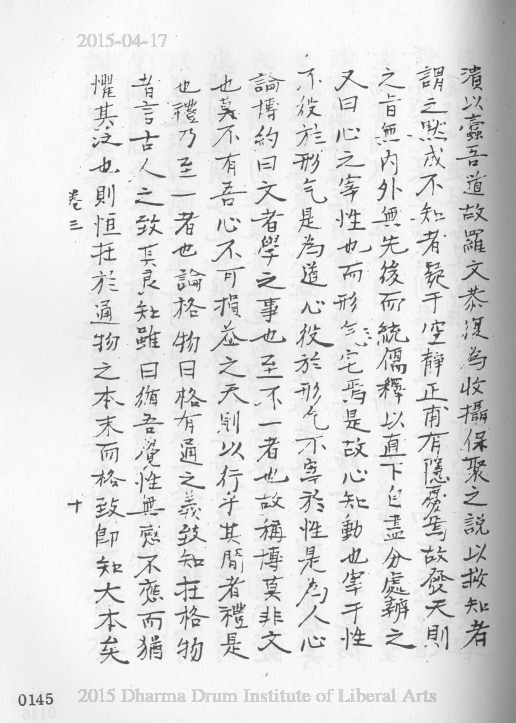 2015-04-17
潰以蠧吾道故羅文恭復為收攝保聚之説以救知者
謂之默成不知者疑于空靜正甫有隱憂焉故發天則
之旨無内外無先後而統儒釋以直下自盡分處辨之
又曰心之宰性也而形气宅焉是故心知動也宰于性
不役於形气是為道心役於形气不宰於性是為人心
論博約曰文者學之事也至不一者也故稱博莫非文
也莫不有吾心不可損益之天則以行乎其閒者禮是
也禮乃至一者也論格物曰格有通之義致知在格物
者言古人之致其良知雖曰循吾覺性無感不應而猶
懼其泛也則恒在於通物之本末而格致即知大本矣
卷三
十
0145
2015 Dharma Drum Institute of Liberal Arts